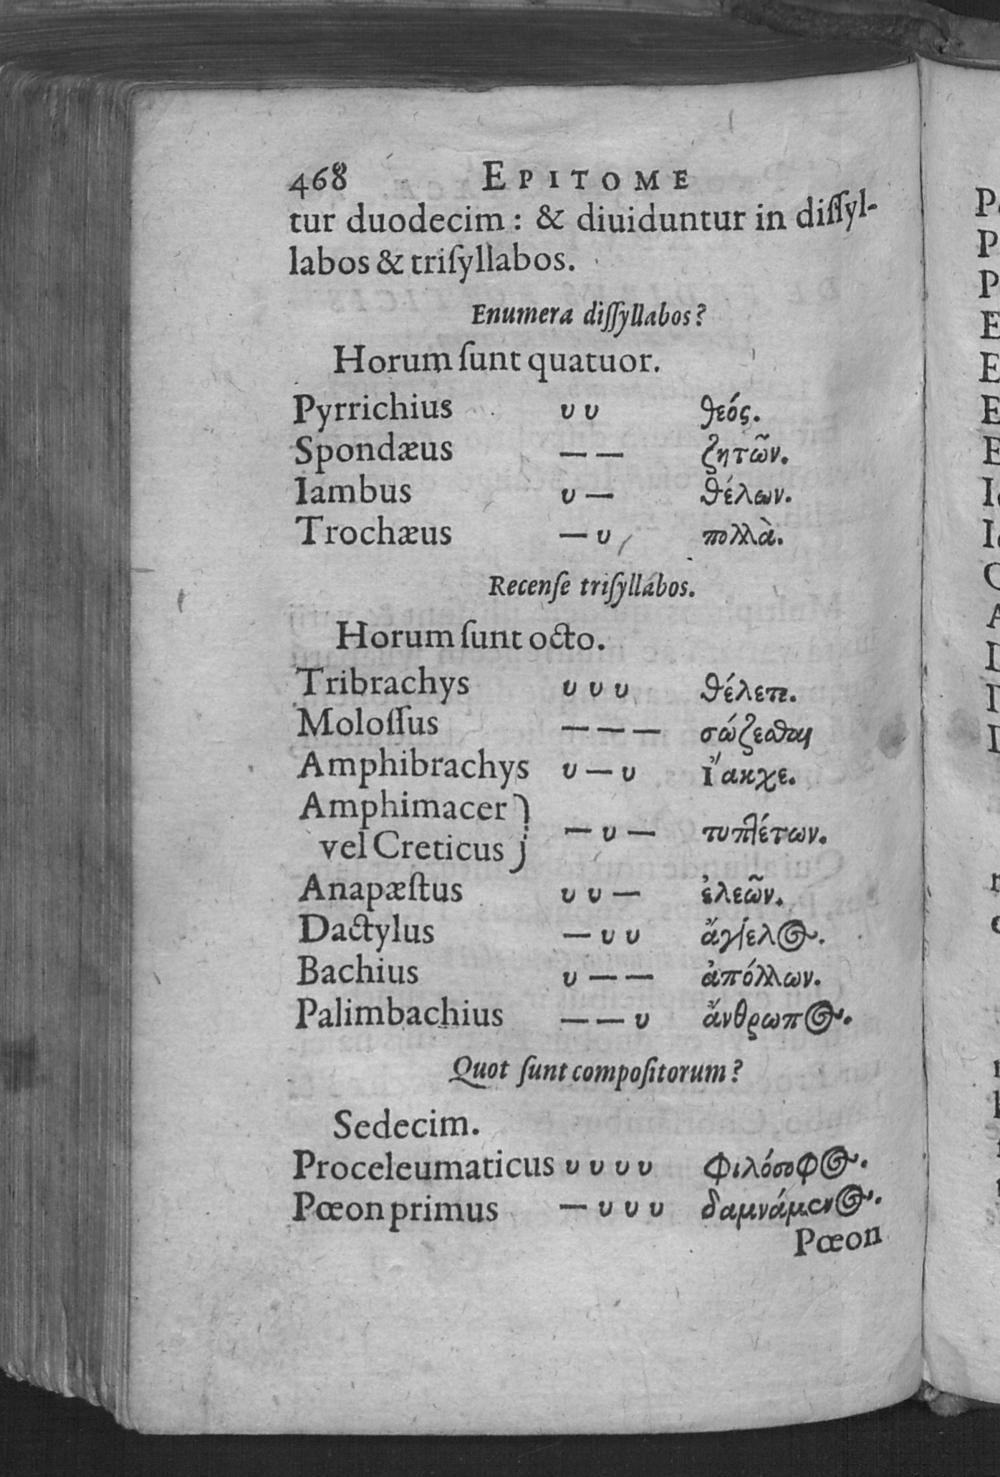 468 EPITOME
tur duodecim: & diuiduntur in diſſyl-
labos & triſyllabos.
Enumera diſſyllabos?
Horum ſunt quatuor.
Pyrrichius υ υ θεός.
Spondæus — — ζητῶν.
Iambus υ — θέλων.
Trochæus — υ πολλὰ.
Recenſe triſyllabos.
Horum ſunt octo.
Tribrachys υ υ υ θέλετε.
Moloſſus — — — σώζεσθαι
Amphibrachys υ — υ ἴακχε.
Amphimacer }
vel Creticus } — υ — τυπτέτων.
Anapæſtus υ υ — ἐλεῶν.
Dactylus — υ υ ἄγγελος.
Bachius υ — — ἀπόλλων.
Palimbachius — — υ ἄνθρωπος.
Quot ſunt compoſitorum?
Sedecim.
Proceleumaticus υ υ υ υ φιλόσοφος.
Pœon primus — υ υ υ δαμνάμενος.
Pœon